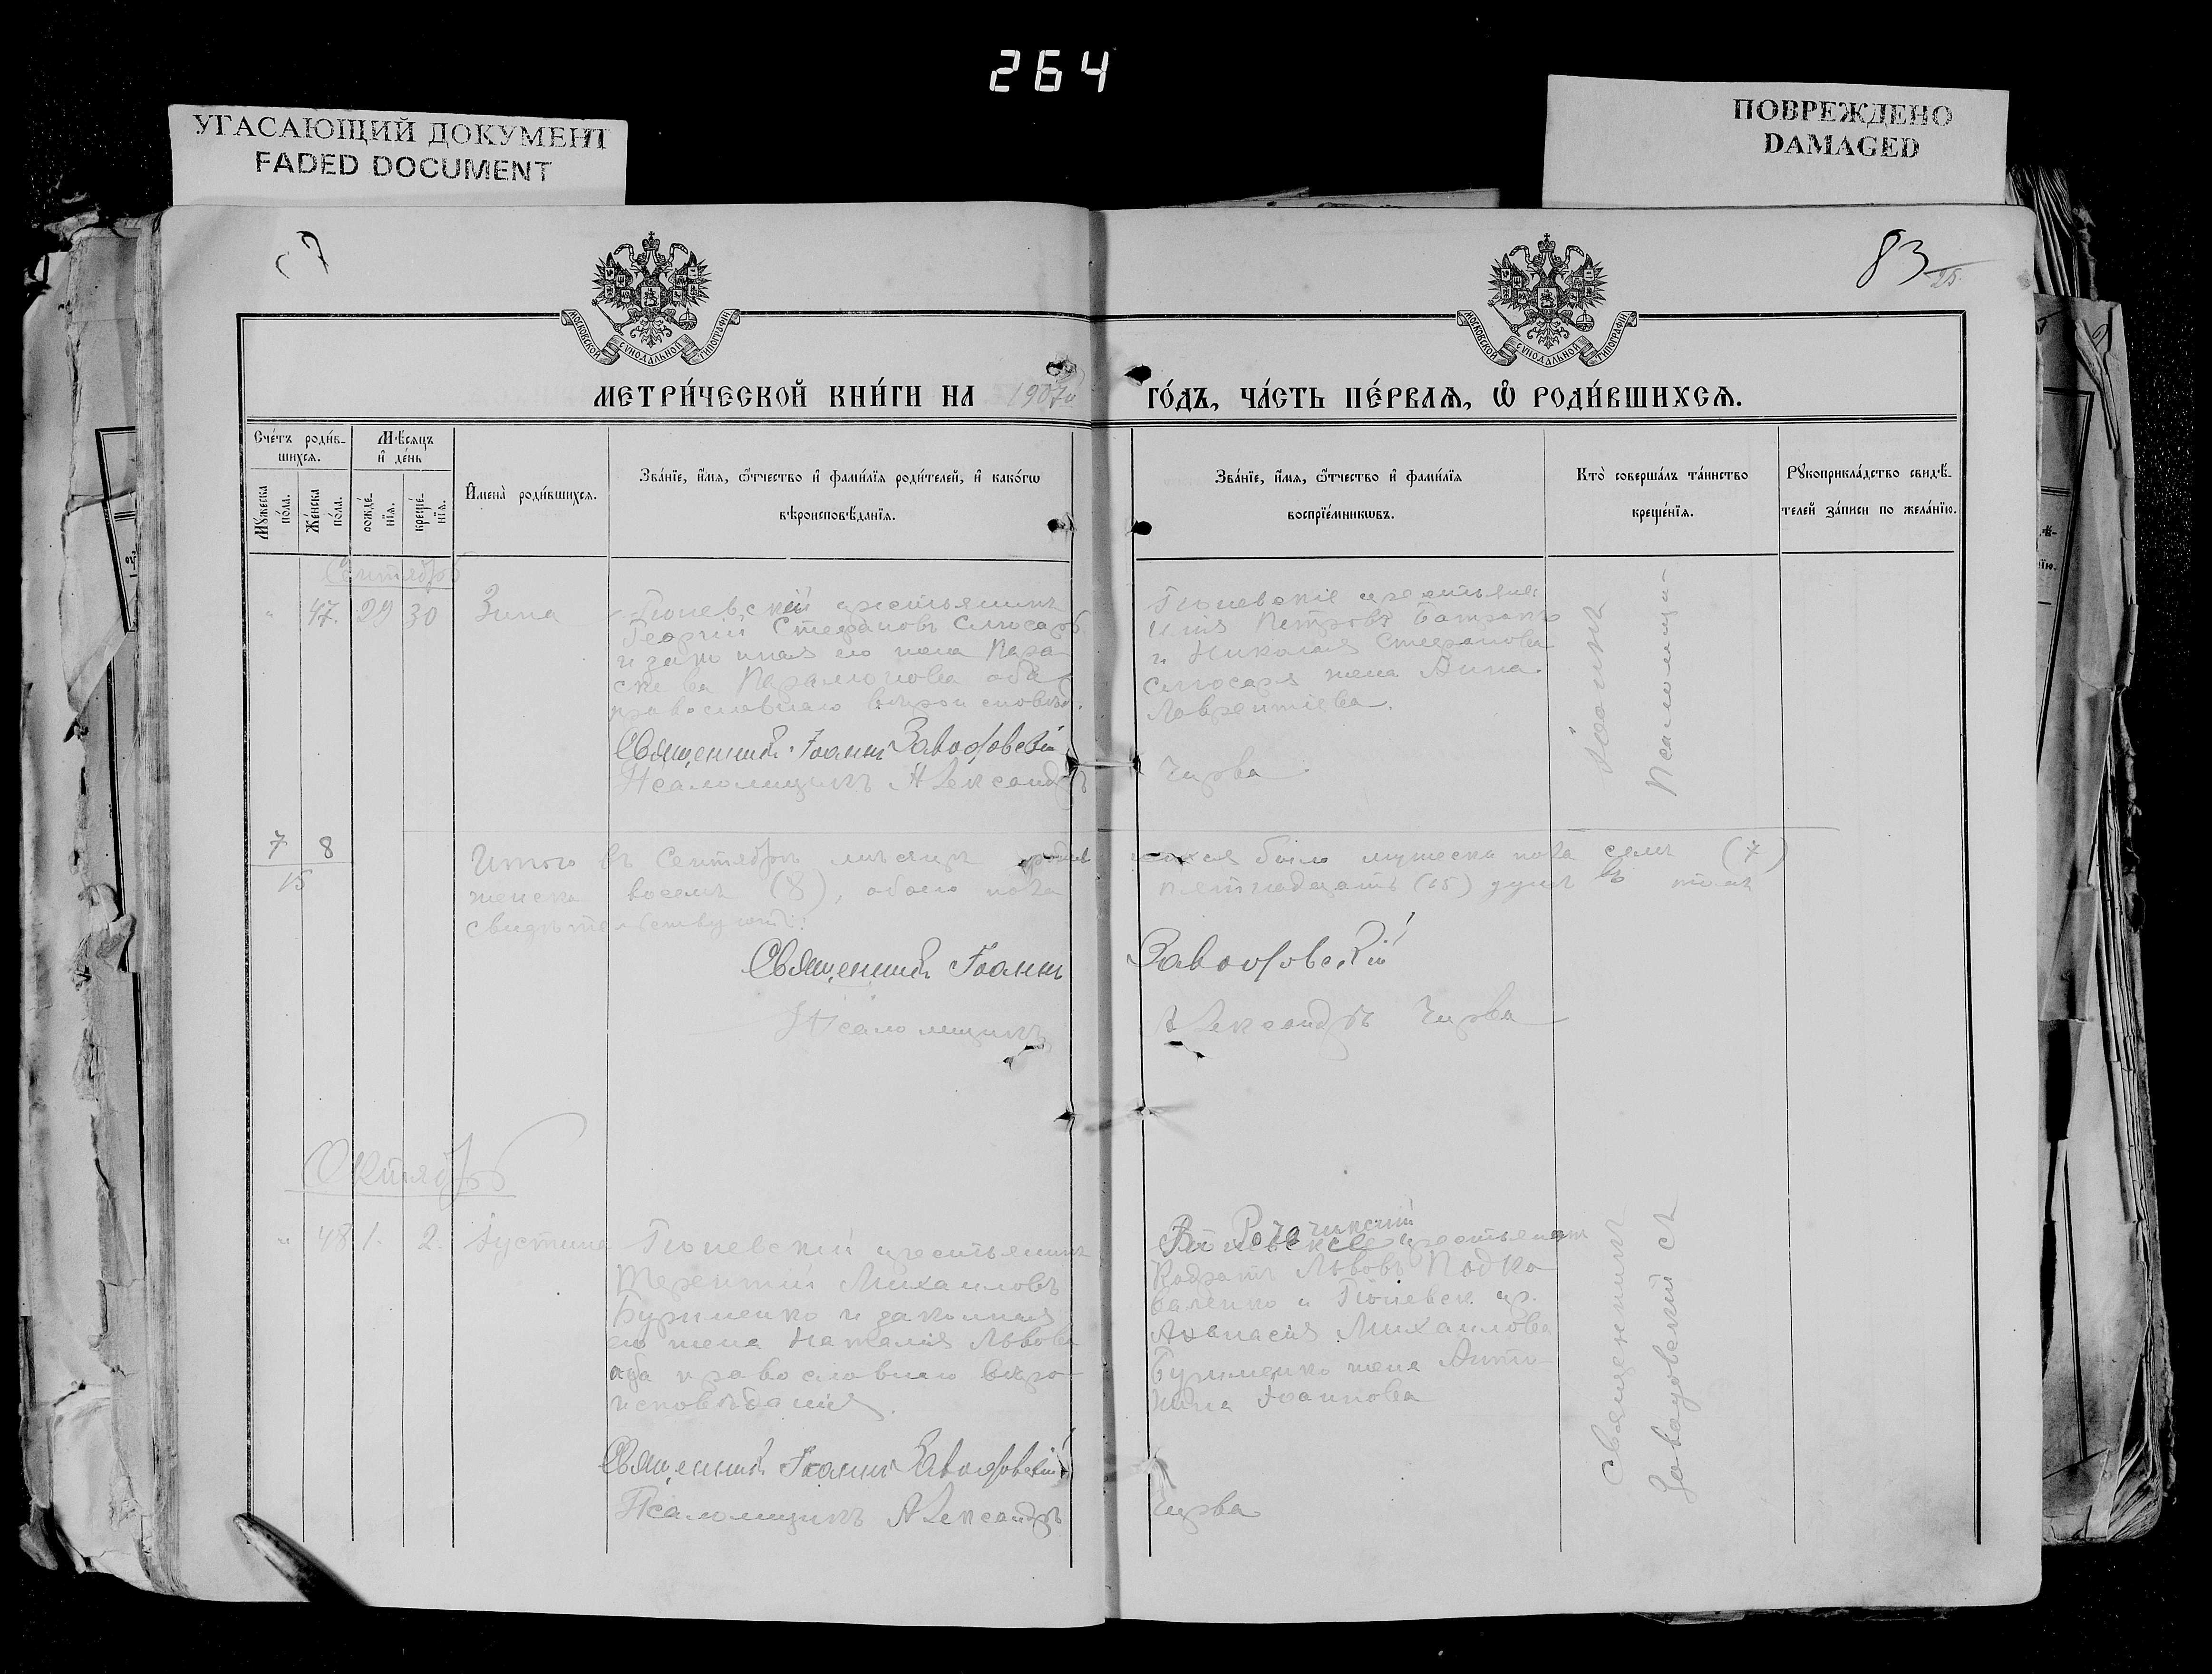 264
УГАСАЮЩИЙ ДОКУМЕНТ
FADED DOCUMENT
ПОВРЕЖДЕНО
DAMAGED
83
25
МОСКОВСКОЙ СѴНОДАЛЬНОЙ ТИПОГРАФІИ
МОСКОВСКОЙ СѴНОДАЛЬНОЙ ТИПОГРАФІИ
МЕТРИ́ЧЕСКОЙ КНИ́ГИ НА 1907й ГО́ДЪ, ЧА́СТЬ ПЕ́РВАѦ, Ѡ҆ РОДИ́ВШИХСѦ.
Сче́тъ роди́в-
шихсѧ.
Мѣ́сѧцъ
и҆ де́нь
Мꙋ́жеска
по́ла.
Же́нска
по́ла.
рожде́-
нїѧ.
креще́-
нїѧ.
И҆мена̀ роди́вшихсѧ.
Зва́нїе, и҆́мѧ, ѻ҆́тчество и҆ фами́лїѧ роди́телей, и҆ како́гѡ
вѣроисповѣ́данїѧ.
Зва́нїе, и҆́мѧ, ѻ҆́тчество и҆ фами́лїѧ
воспрїе́мникѡвъ.
Кто̀ соверша́лъ та́инство
креще́нїѧ.
Рꙋкоприкла́дство свидѣ́-
телей за́писи по жела́нїю.
Сентябрь
" 47. 29 30 Зина
крестьянинъ
Георгій Стефановъ Слюсарь
и законная его жена Пара-
скева Парамонова оба
православнаго вѣроисповѣд.
Священникъ Іоаннъ Заводовскій
Псаломщикъ Александръ
Петровъ
и Николая Стефанова
Слюсаря жена Анна
Лаврентіева.
Чирва
Іоаннъ
Псаломщи-
7 8
15
Итого въ Сентябрѣ мѣсяцѣ было мужеска пола семь (7)
женска восемь (8), обоего пола пятнадцать (15) душъ въ томъ
свидѣтельствуютъ:
Священникъ Іоаннъ Заводовскій
Псаломщикъ Александръ Чирва
Октябрь
" 48 1. 2. Іустина
крестьянинъ
Терентій Михаиловъ
Бурименко и законная
его жена Наталія Львова
оба православнаго вѣро-
исповѣданія.
Священникъ Іоаннъ Заводовскій
Псаломщикъ Александръ
крестьянинъ
Кодратъ Львовъ Подко-
валенко и кр.
Аѳанасія Михаилова
Бурименко жена Анто-
нина Іоаннова
Чирва
Священникъ
Заводовскій съ